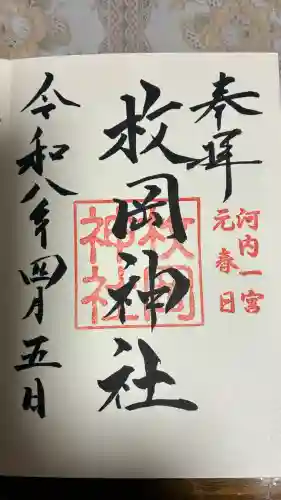 奉拝
河内一宮
元春日
枚岡神社
枚岡
神社
令和八年四月五日